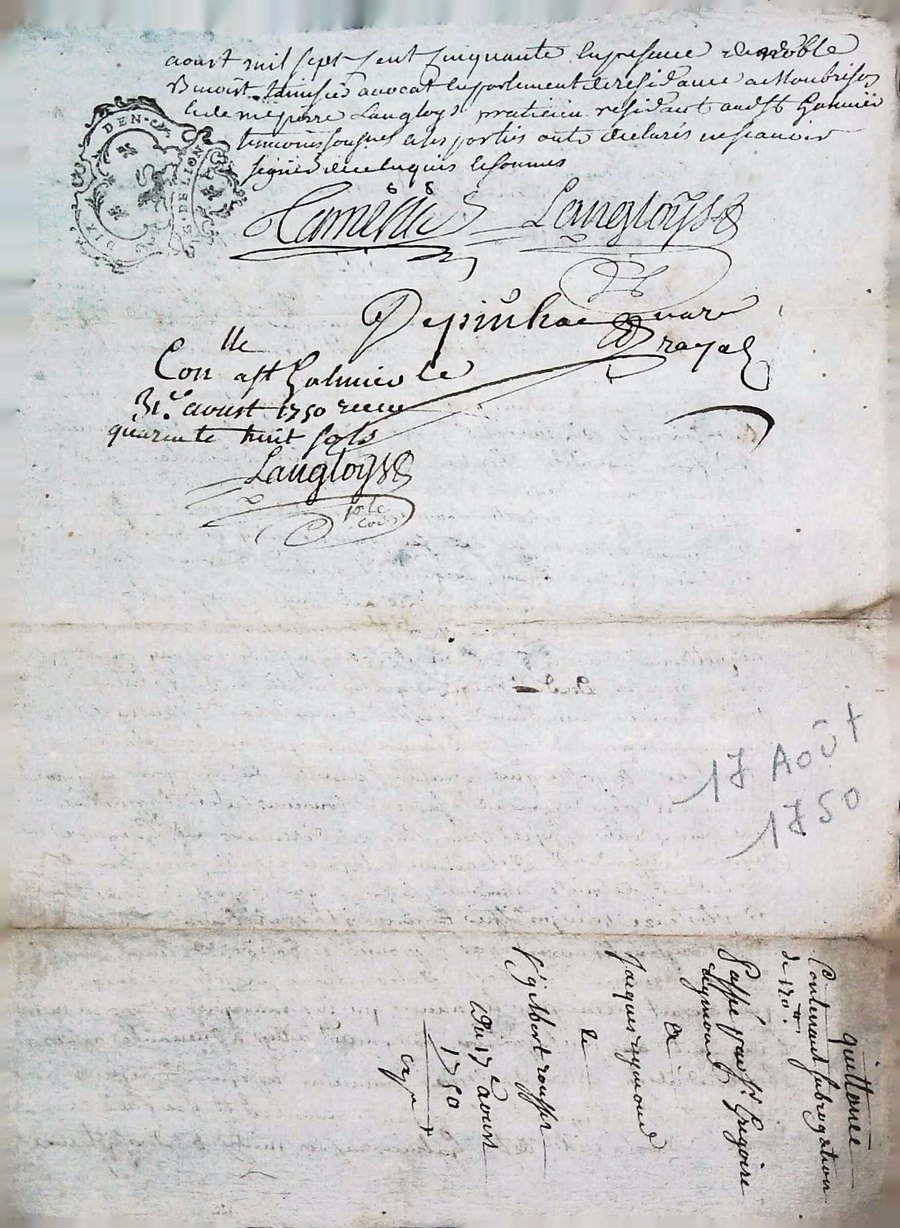 aoust mil sept sent sinquante en presence de noble
Benoist avocat en parlement de residance a Montbrison
et de me pierre Langloys praticien residant audt st Galmier
temoins sousgnes et les parties ont declaré ne scavoir
signer de ce enquis le sommes
DEN
G. DE LION
Langloys
Depinhac
royal
Con lle a st Galmier le
31.e aoust 1750 receu
quarente huit sols
Langloys
17 Août
1750
quittance
Contenant subrogation
de 170
passé par Sr Grégoire
Reymond
a
Jacques reymond
et
Gilbert
Du 17e aoust
1750